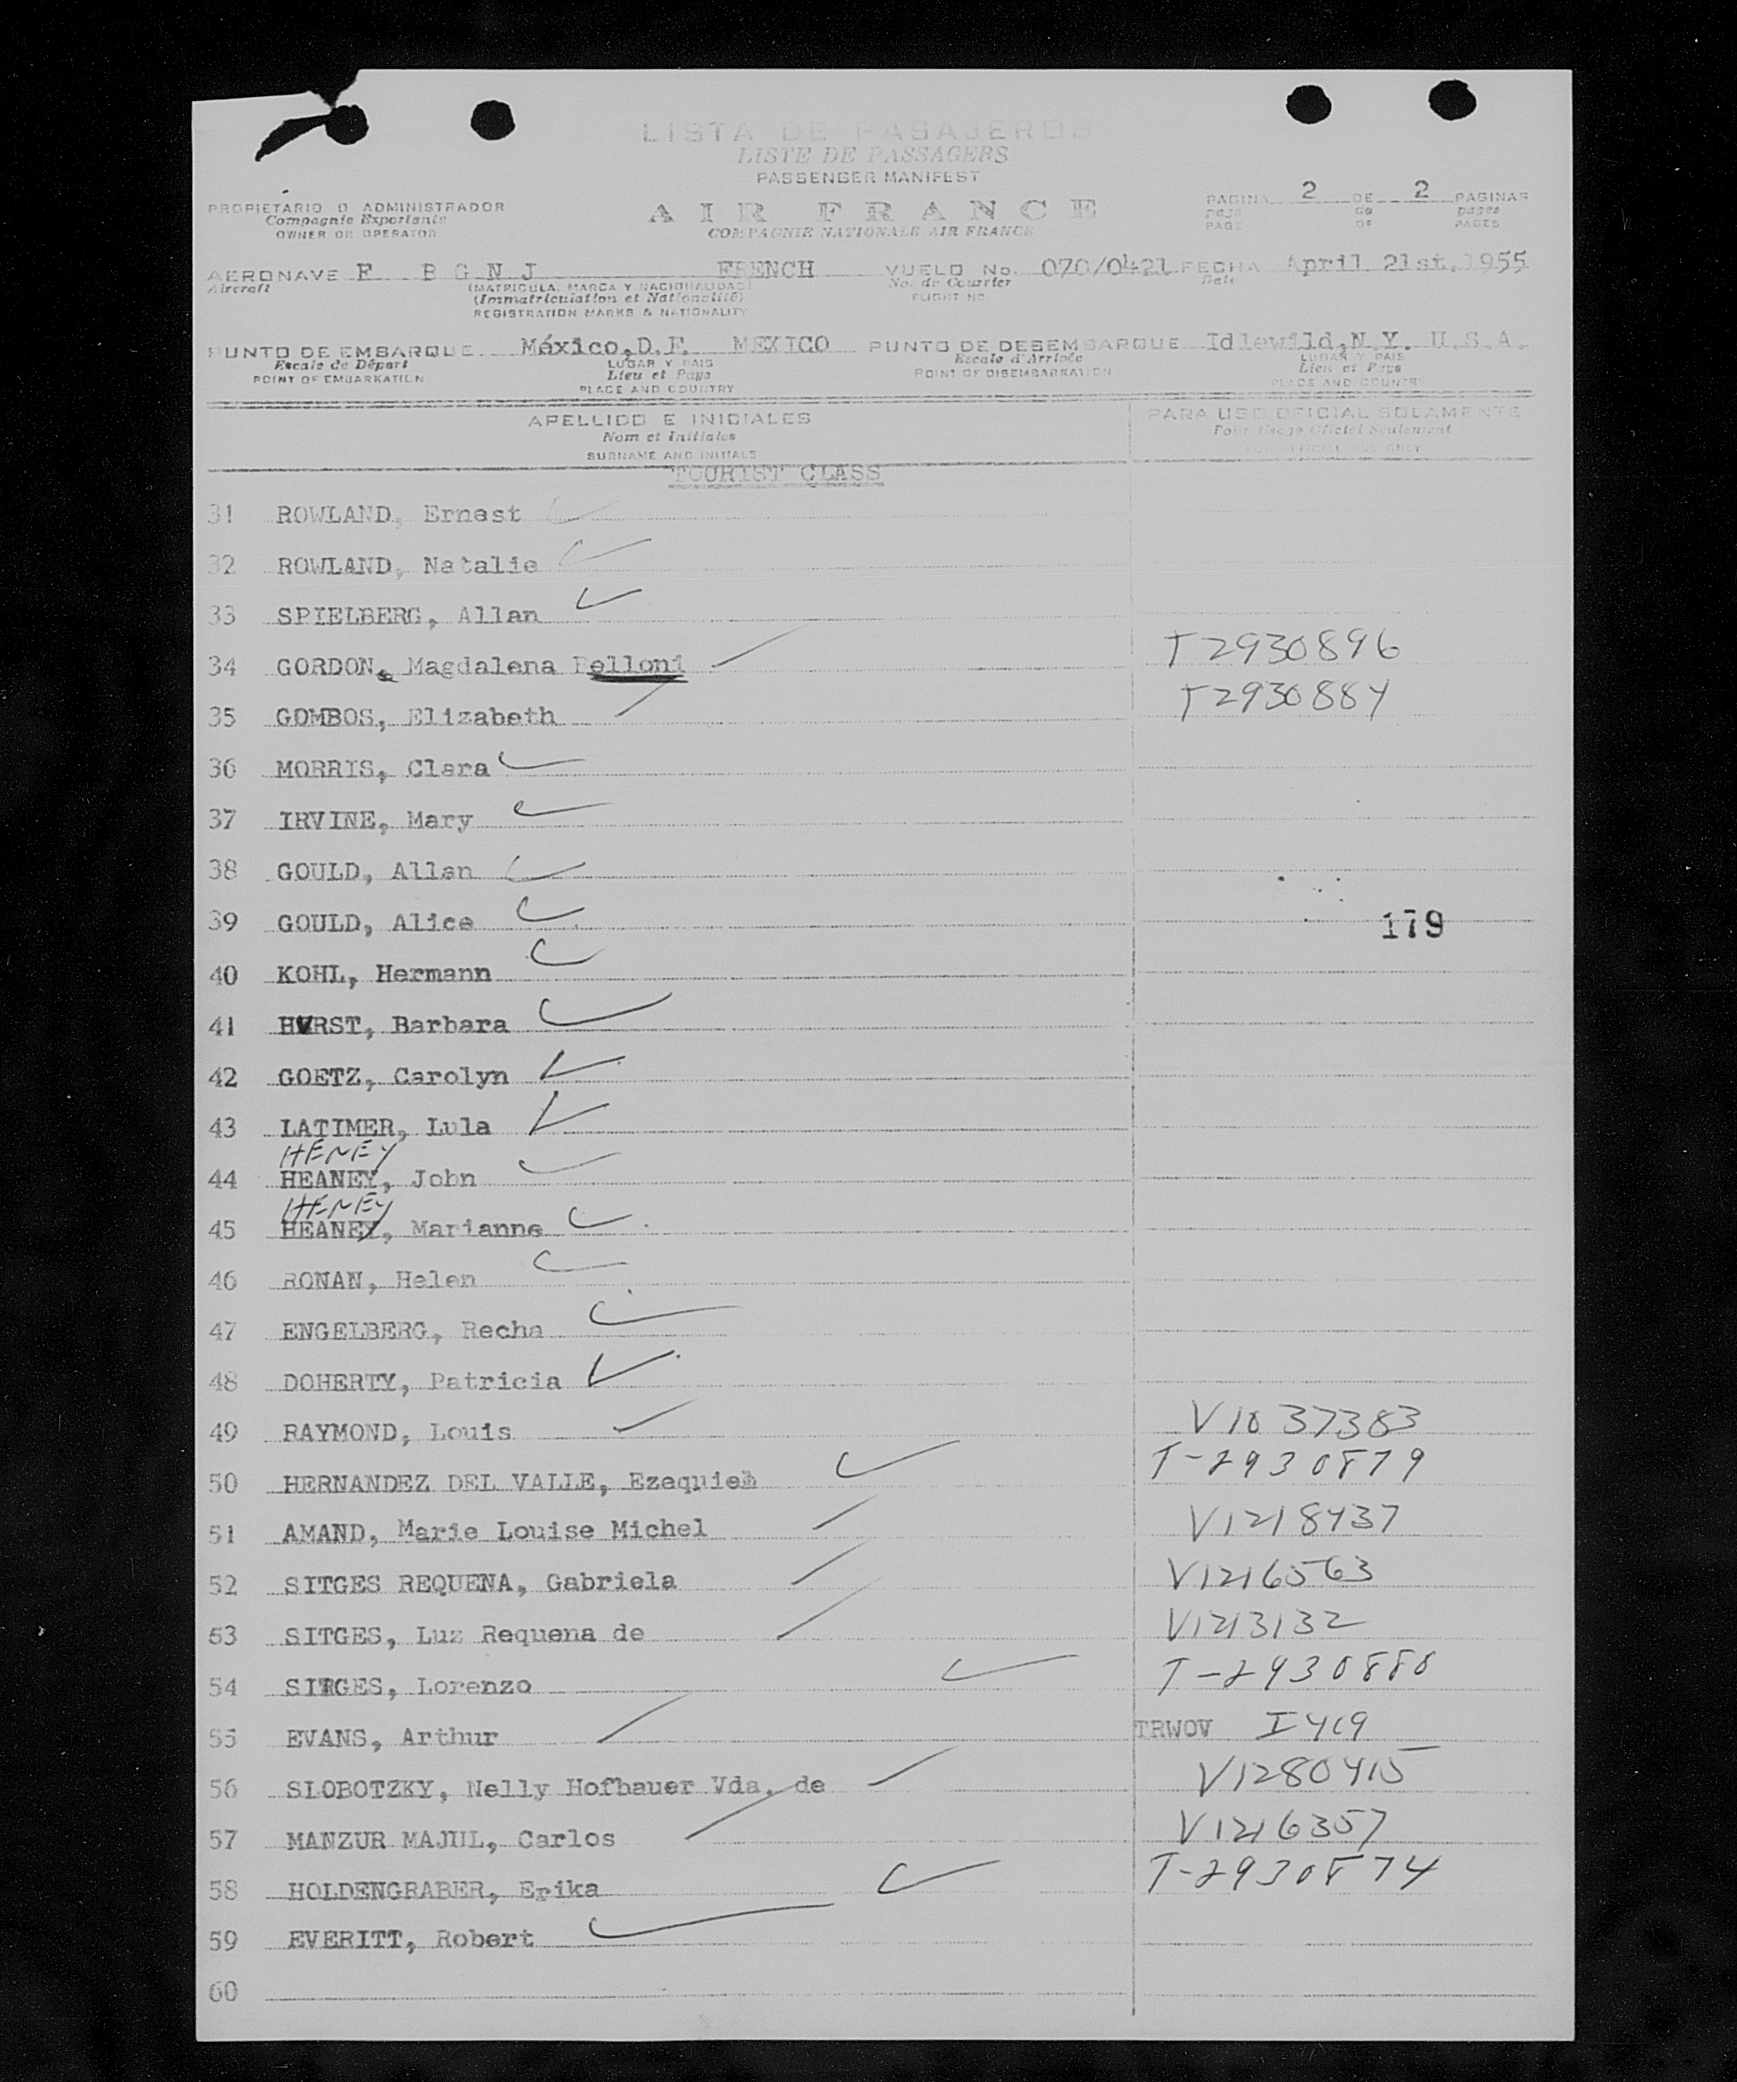 LISTA DE PASAJEROS
LISTE DE PASSAGERS
PASSENGER MANIFEST
PROPIETARIO O ADMINISTRADOR
Compagnie Exportante
OWNER OR OPERATOR
AIR FRANCE
COMPAGNIE NATIONALE AIR FRANCE
PAGINA 2 DE 2 PAGINAS
page de pages
PAGE OF PAGES
AERONAVE F B G N J FRENCH VUELO No. 070/0421 FECHA April 21st, 1955
Aircraft (MATRICULA, MARCA Y NACIONALIDAD) No. de Courrier Date
(Immatriculation et Nationalité) FLIGHT NO.
REGISTRATION MARKS & NATIONALITY
PUNTO DE EMBARQUE México, D.F. MEXICO PUNTO DE DESEMBARQUE Idlewild, N.Y. U.S.A.
Escale de Départ LUGAR Y PAIS Escale d'Arrivée LUGAR Y PAIS
POINT OF EMBARKATION Lieu et Pays POINT OF DISEMBARKATION Lieu et Pays
PLACE AND COUNTRY PLACE AND COUNTRY
APELLIDO E INICIALES PARA USO OFICIAL SOLAMENTE
Nom et Initiales Pour Usage Officiel Seulement
SURNAME AND INITIALS
TOURIST CLASS
31 ROWLAND, Ernest
32 ROWLAND, Natalie
33 SPIELBERG, Allan
34 GORDON, Magdalena Pelloni T2930896
35 GOMBOS, Elizabeth T2930884
36 MORRIS, Clara
37 IRVINE, Mary
38 GOULD, Allan
39 GOULD, Alice 179
40 KOHL, Hermann
41 HURST, Barbara
42 GOETZ, Carolyn
43 LATIMER, Lula
HENEY
44 HEANEY, John
HENEY
45 HEANEY, Marianne
46 RONAN, Helen
47 ENGELBERG, Recha
48 DOHERTY, Patricia
49 RAYMOND, Louis V1037383
50 HERNANDEZ DEL VALLE, Ezequiel T-2930879
51 AMAND, Marie Louise Michel V1218437
52 SITGES REQUENA, Gabriela V1216563
53 SITGES, Luz Requena de V1213132
54 SITGES, Lorenzo T-2930880
55 EVANS, Arthur TRWOV I419
56 SLOBOTZKY, Nelly Hofbauer Vda. de V1280415
57 MANZUR MAJUL, Carlos V1216357
58 HOLDENGRABER, Erika T-2930874
59 EVERITT, Robert
60